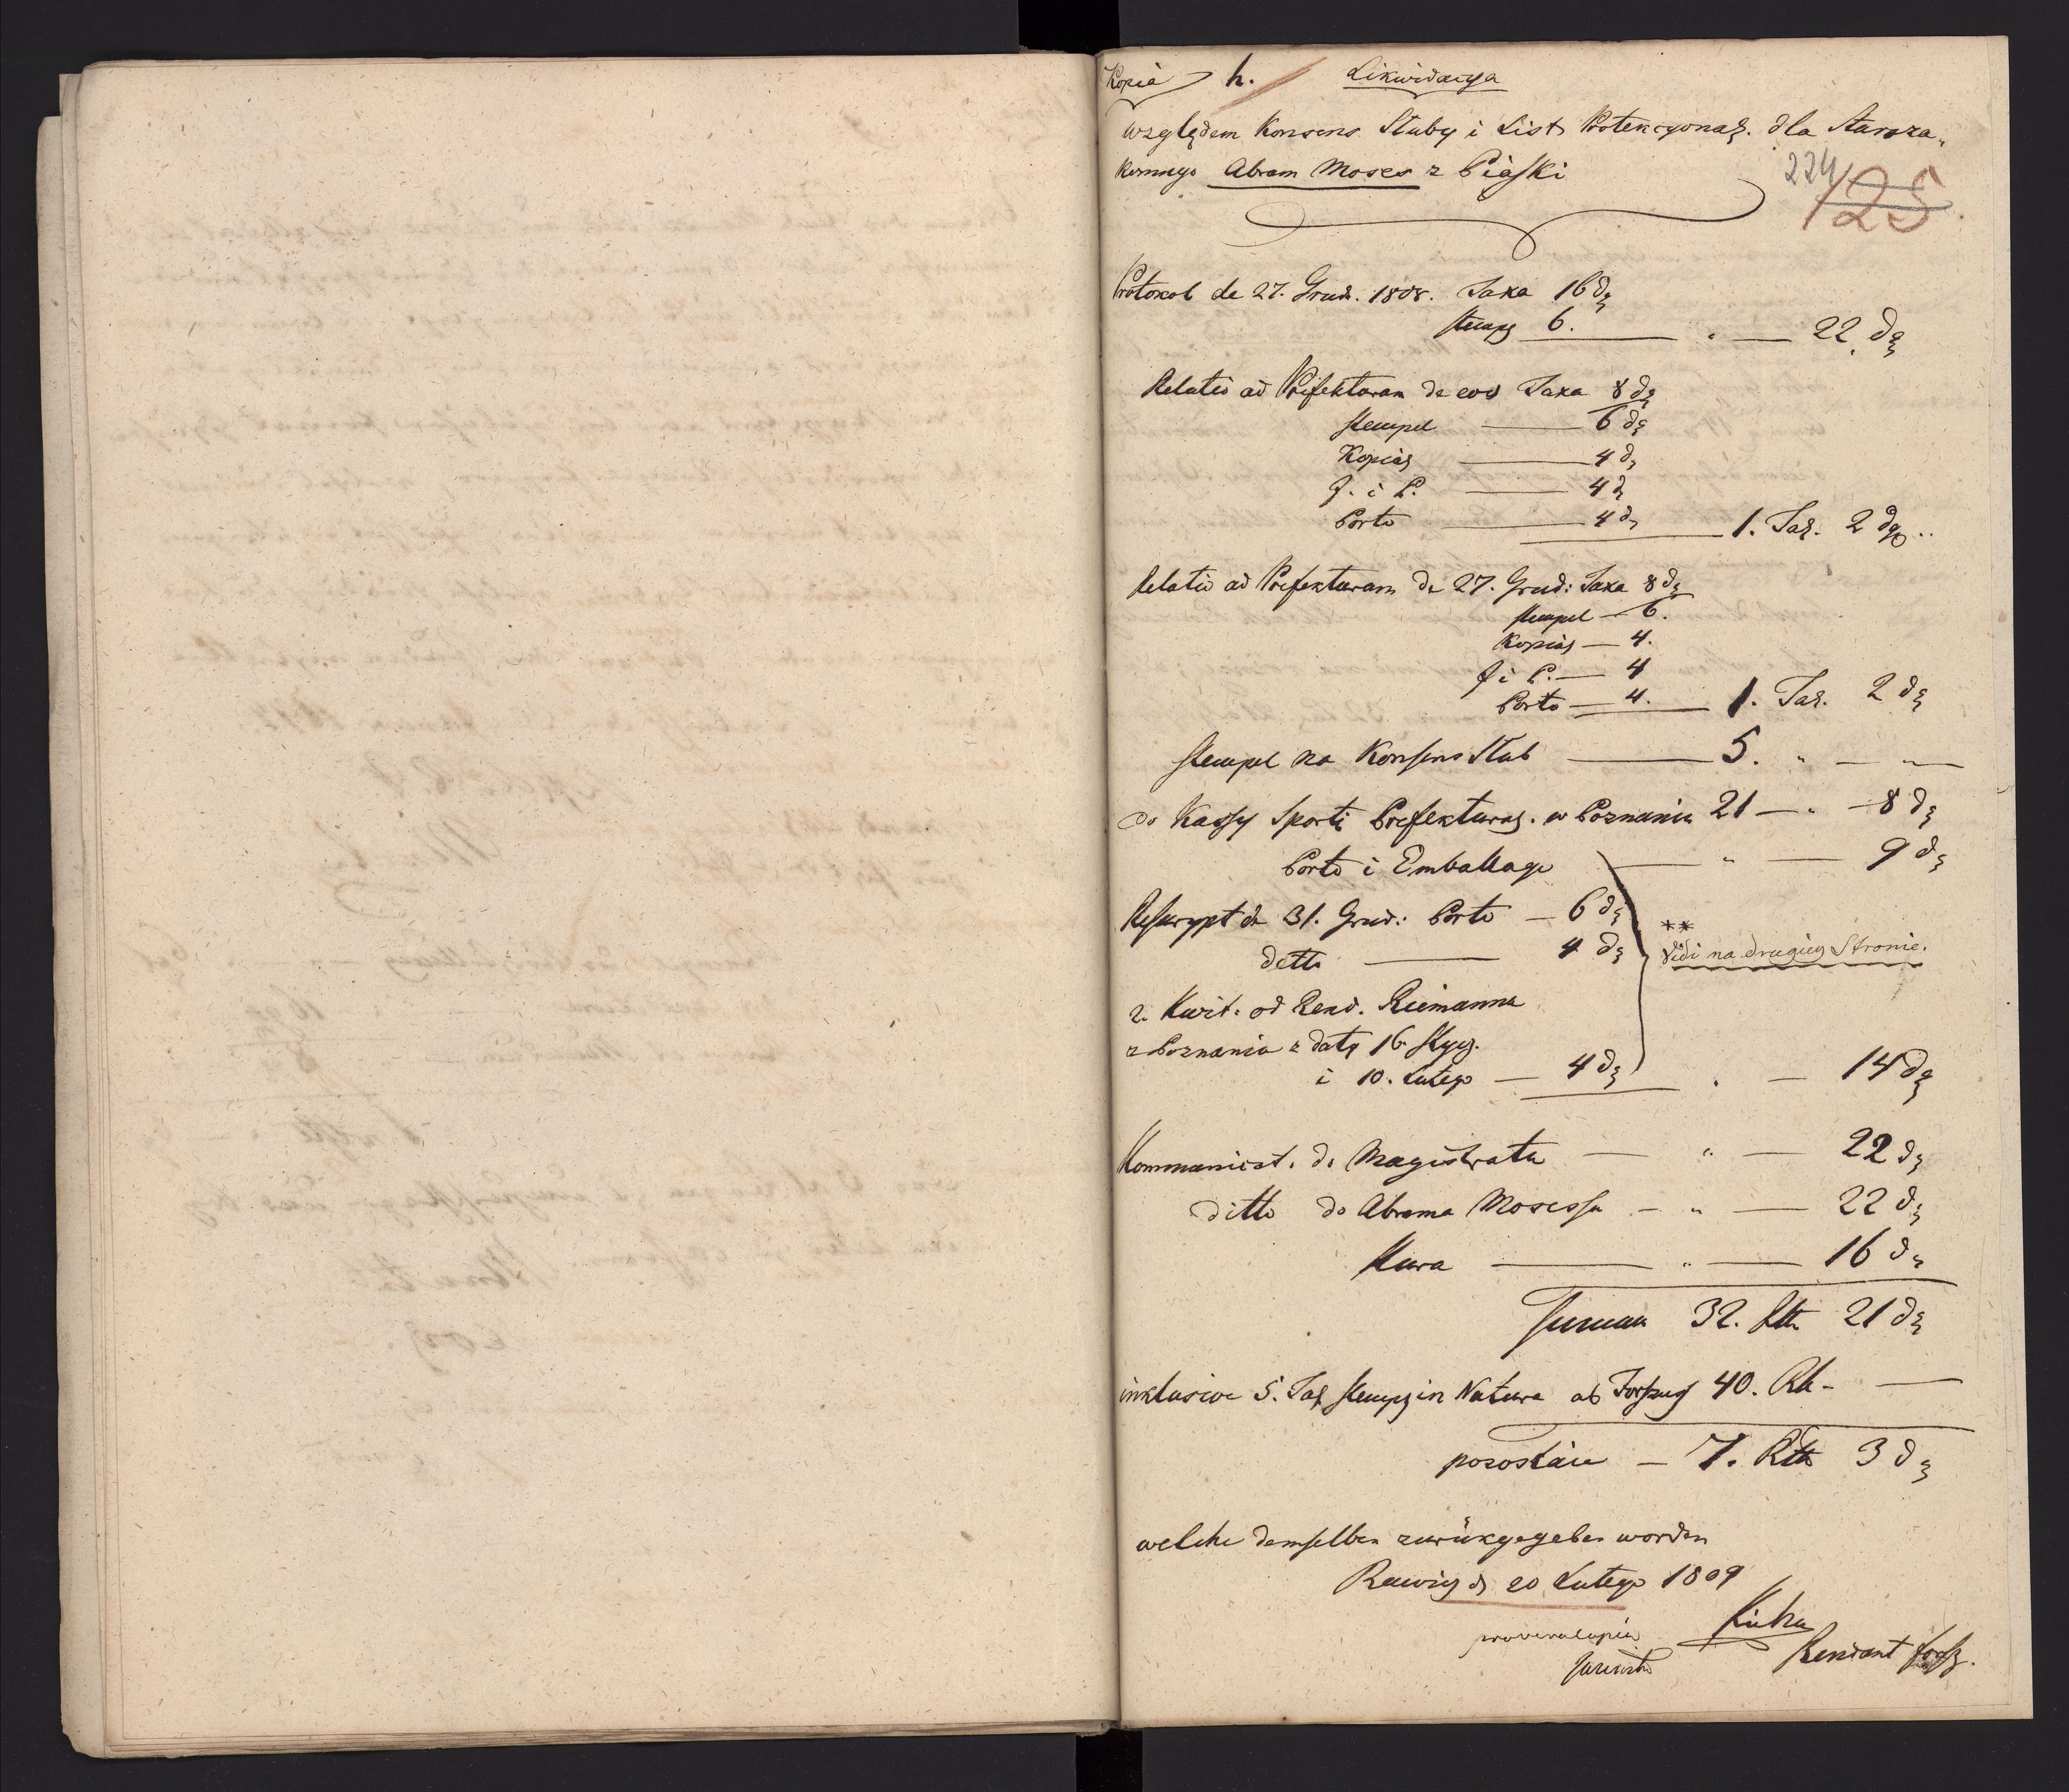 Kopia h. Likwidacya
względem Konsens Sluby i List Protekcyonal. dla Staroza„
konnego Abram Moses z Piaski
224
125
Protokol de 27. Grud. 1808. Taxa 16 dg
stemp 6. — " — 22 dg
Relatio ad Prefekturam de eod Taxa 8 dg
stempel — 6 dg
Kopial — 4 dg
J. i P. — 4 dg
Porto — 4 dg — 1. Tal. 2 dg
Relatio ad Prefekturam de 27. Grud: Taxa 8 dg
stempel — 6.
Kopial — 4.
J i P. — 4
Porto — 4. — 1. Tal. 2 dg
stempel na Konsens Slub — 5. " — " —
do Kassy Sporti Prefektural. w Poznaniu 21 — " — 8 dg
Porto i Emballage — " — 9 dg
Reskrypt de 31. Grud: Porto — 6 dg
detto — 4 dg
**
Vidi na drugiey Stronie.
2. Kwit. od Rend. Riemanna
z Poznania z datą 16. Stycz.
i 10. Lutego — 4 dg — " — 14 dg
Kommunicat. do Magistratu — " — 22 dg
ditto do Abrama Mosessa — " — 22 dg
— " — 16 dg
Summa 32. Rth 21 dg
inklusive 5. Tal stemp in Natura ab Forszus 40. Rth —
pozostaie — 7. Rth 3 dg
welche demselben zurükgegeben worden
Rawicz d 20 Lutego 1809
pro vera copia
Rendant